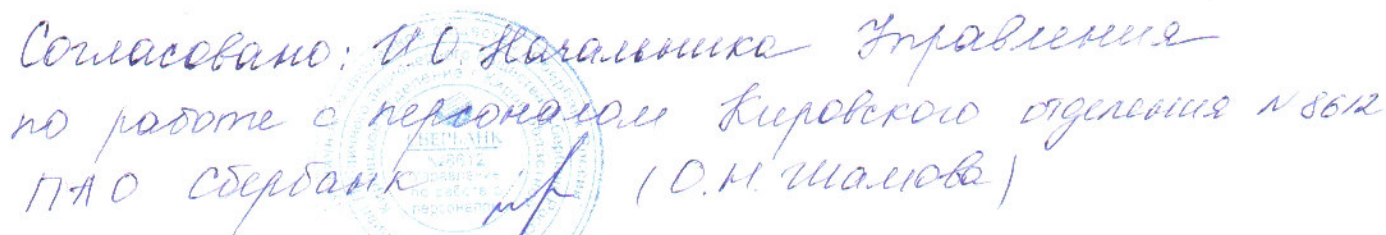 Согласовано: И.О. Начальника Управления
по работе с персоналом Кировского отделения N 8612
ПАО Сбербанк (О.Н. Шамова)
СБЕРБАНК
№8612
Управление
по работе с
персоналом